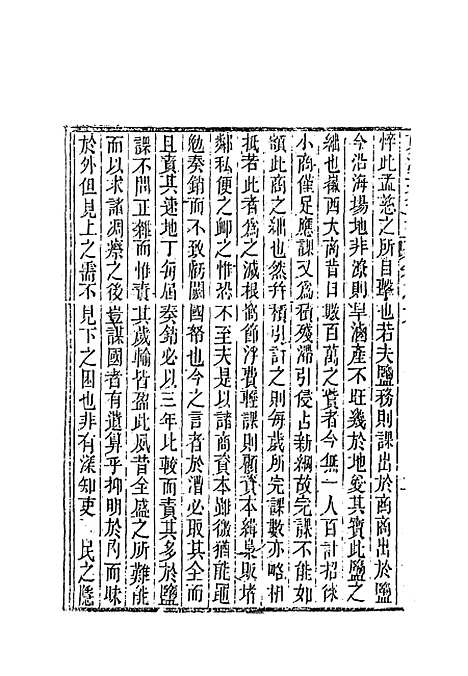 悴此孟慈之所自聲也若夫鹽務則課出於商商出於鹽
今沿海場地非潦則旱滷產不旺幾於地愛其寶此鹽之
絀也淮西大商昔日數百萬之貲者今無一人百計招徠
小商僅足應課又為積殘滯引侵占新綱故完課不能如
額此商之絀也然幷積引計之則每歲所完課數亦略相
抵者此者為之減根窩節浮費輕課則顧資本緝梟販堵
鄰私便之卹之惟恐不至夫是以諸商資本雖微猶能黽
勉奏銷而不致虧闕國帑也今之言者於漕必取其全而
且責其速地丁每屆奏銷必以三年比較而責其多於鹽
課不問正雜而惟責其歲輸皆盈此風昔全盛之所難能
而以求諸凋瘵之後豈謀國者有遺算乎抑明於內而昧
於外但見上之需不見下之困也非有深知吏民之隱